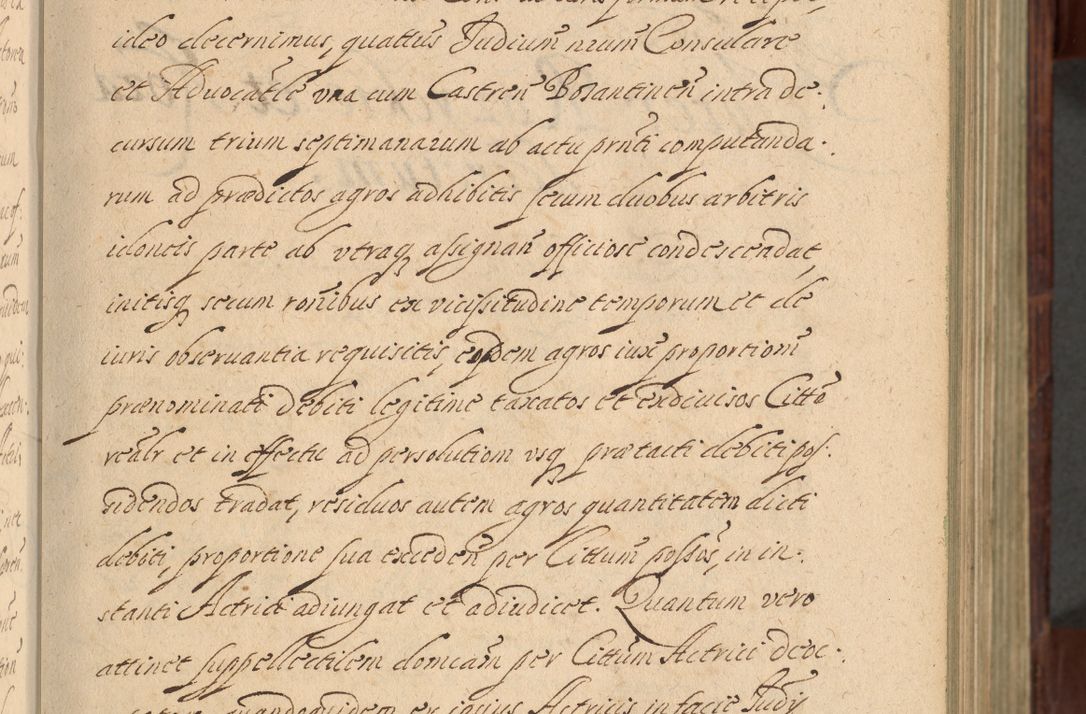 ideo decernimus, quattus Judium nrum Consulare
et Advocatle vna cum Castren Bosantinen intra de:
cursum trium septimanarum ab actu prnti computanda:
rum ad prædictos agros adhibitis secum duobus arbitris
idoneis parte ab vtraq assignan officiose condescendat,
initisq secum ronibus ex vicissitudine temporum et de
iuris obseruantia requisitis, eosdem agros iuxe proportiom
prænominati debiti legitime taxatos et exdiuisos Citto
realr et in effectu ad persolutiom vsq prætacti debiti pos:
sidendos tradat, residuos autem agros quantitatem dicti
debiti, proportione sua exceden per Cittum possos, in in:
stanti Actrici adiungat et adiudicet. Quantum vero
attinet suppellectilem domcam per Cittum Actrici deoc:
quandoquidem ex ipsius Actricis in facie Judy